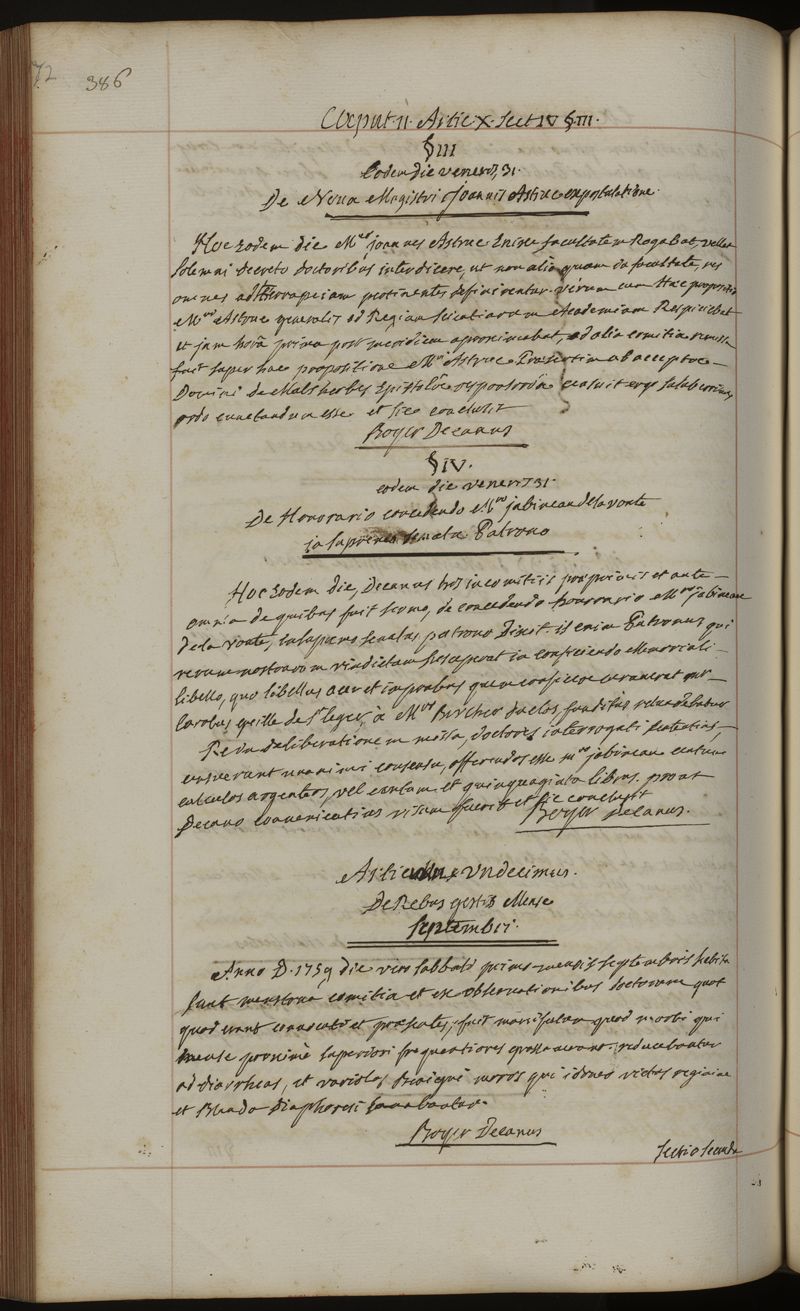 72 386
Caput II. Artic X. Sect IV §. III.
§ III
Eodem die veneris, 31.
De Nova Magistri Joannis Astruc expostulatione.
Hoc Eodem die M^er Joannes Astruc Enixe facultatem Rogabat, vellet
solemni decreto doctoribus interdicere, ut non alio quam in facultate, res
omnes ad Therapeiam pertinentes definirentur. verum cum Haec propositio
M^ri Astruc generalis ad Regiam scientiarum Academiam Respiciebat
et jam hora prima post meridiem aproximabat, ad alia comitia remissa
fuit super hac propositione M^ri Astruc Praesertim ab acceptae
Domini de Malsherbes Epistolae censuit ergo saluberrimus
ordo cunctandum esse et sic conclusit
Boyer Decanus
§ IV.
eodem die veneris 31.
De Honorario concedendo M^ro jabineau de la voute
in supremo senatu Patrono
Hoc Eodem die, Decanus his in comitiis propriis et ante
omnia de quibus fuit sermo, de concedendo honorario M^ro jabineau
de la voute, in supremo senatu patrono Dixit. is enim Patronus qui
rerum nostrarum vindictam susceperat in conficiendo Memoriali
libello, quo libellus acer et improbus quem conficere curaverat
Carolus guille de S^t leger, à M^ro Bercher duclos, funditus
Re in deliberationem missa, doctores interrogati sententias,
censuerunt unanimi consensu, offerendos esse m^ro jabineau centum
calculos argenteos, vel centum et quinquaginta libras. prout
Decano convenientius visum fuerit et sic conclusit
Boyer Decanus.
Articulus Undecimus.
De Rebus gestis Mense
Septembri.
Anno D. 1759 die vero sabbati primo mensis septembris habita
sunt menstrua comitia et ex observationibus doctorum quot
quod erant convocati et praesentes, fuit manifestum quod morbi qui
mense proximè superiori frequentiores grassaverant. reducebantur
ad diarrheas, et variolas Benignè moros qui idoneo victus regimine
et Blando diaphoresi sanabantur.
Boyer Decanus
Sectio secunda